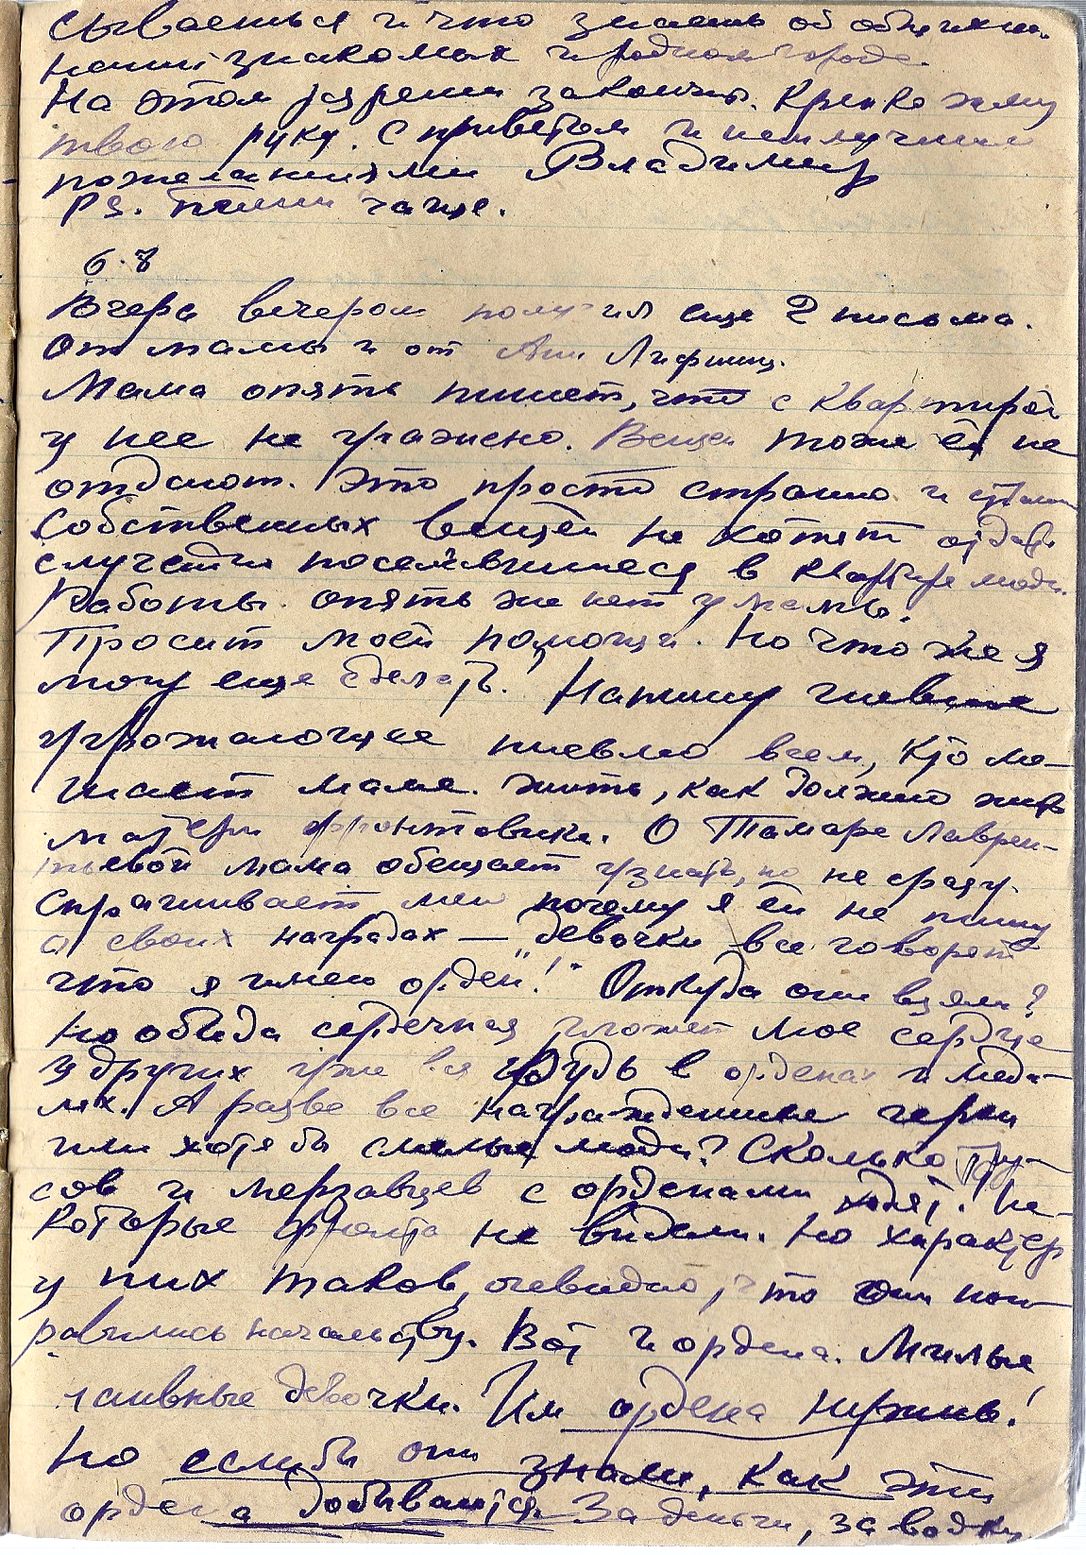 сываешься и что знаешь об общих
наших знакомых и родном городе.
На этом разреши закончить. Крепко жму
твою руку. С приветом и наилучшими
пожеланиями Владимир
PS. Пиши чаще.
6.8
Вчера вечером получил еще 2 письма.
От мамы и от Ани Лифшиц.
Мама опять пишет, что с квартирой
у нее не улажено. Вещей тоже ей не
отдают. Это просто странно и
собственных вещей не хотят отдать
случайно поселившиеся в квартире люди.
Работы опять же нет у мамы.
Просит моей помощи. Но что же я
могу еще сделать! Напишу гневное
угрожающее письмо всем, кто ме-
шает маме жить, как должно жить
матери фронтовика. О Тамаре Лаврен-
тьевой мама обещает узнать, но не сразу.
Спрашивает меня почему я ей не пишу
о своих наградах — "девочки все говорят
что я имею орден"! Откуда они взяли?
Но обида сердечная гложет мое сердце
У других уже вся грудь в орденах и меда-
лях. А разве все награжденные герои
или хотя бы смелые люди? Сколько тру-
сов и мерзавцев с орденами ходят. Не-
которые фронта не видели. Но характер
у них таков, очевидно, что они пон-
равились начальству. Вот и ордена. Милые
наивные девочки. Им ордена нужны!
Но если бы они знали, как эти
ордена добываются. За деньги, за водку